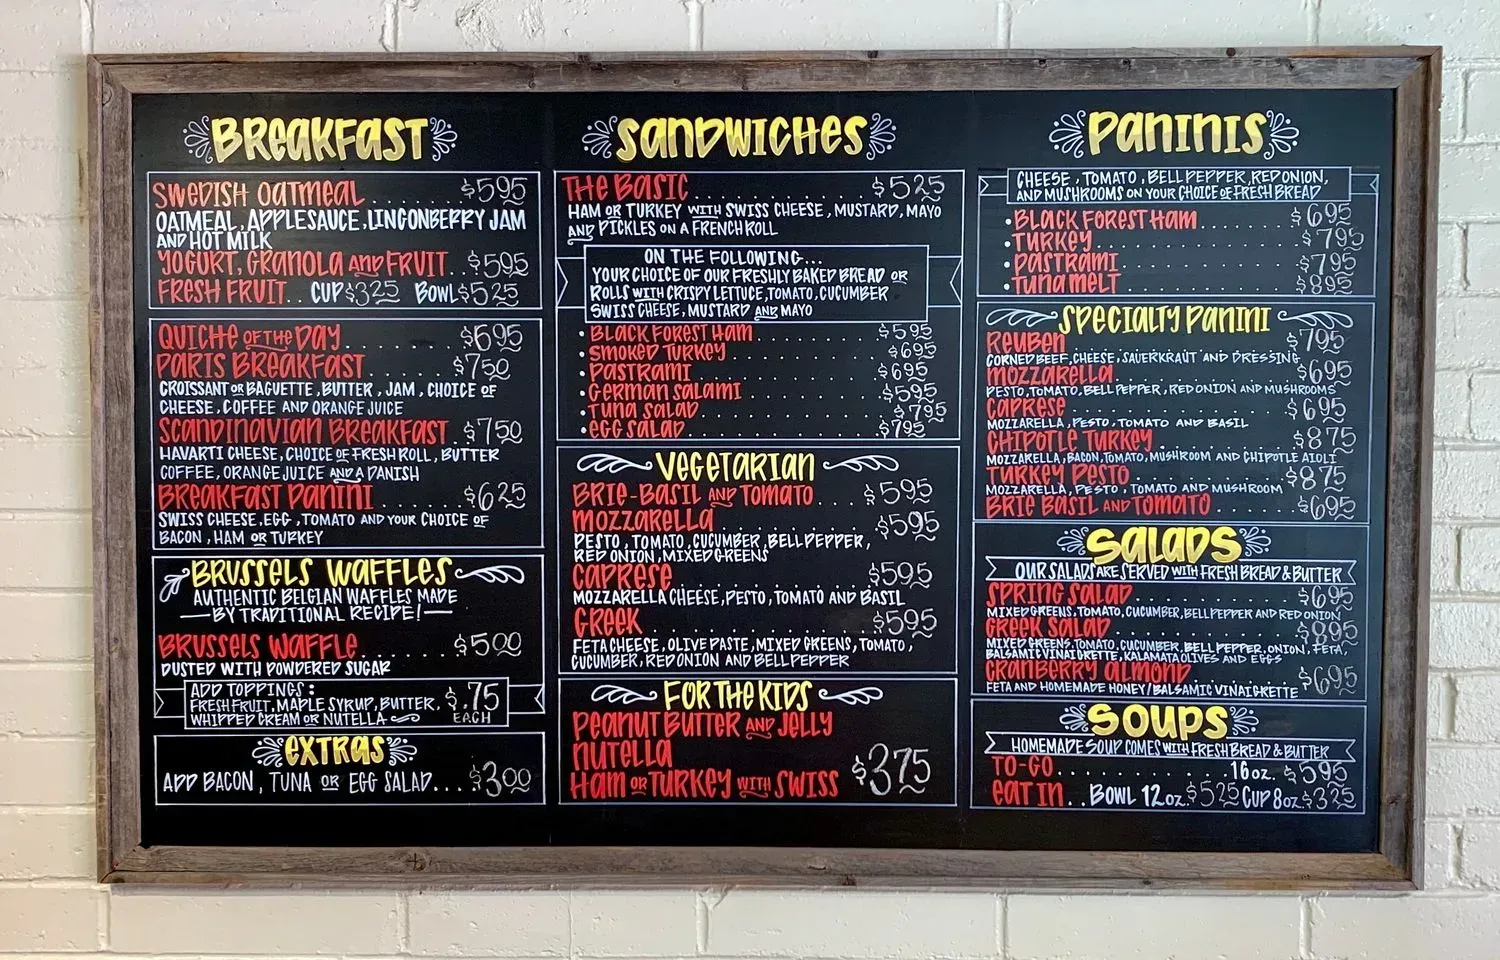 BREAKFAST
SWEDISH OATMEAL $5.95
OATMEAL, APPLESAUCE, LINGONBERRY JAM
AND HOT MILK
YOGURT, GRANOLA AND FRUIT.. $5.95
FRESH FRUIT.. CUP $3.25 BOWL $5.25
QUICHE OF THE DAY ........ $6.95
PARIS BREAKFAST ........ $7.50
CROISSANT OR BAGUETTE, BUTTER, JAM, CHOICE OF
CHEESE, COFFEE AND ORANGE JUICE
SCANDINAVIAN BREAKFAST . $7.50
HAVARTI CHEESE, CHOICE OF FRESH ROLL, BUTTER
COFFEE, ORANGE JUICE AND A DANISH
BREAKFAST PANINI ....... $6.25
SWISS CHEESE, EGG, TOMATO AND YOUR CHOICE OF
BACON, HAM OR TURKEY
BRUSSELS WAFFLES
AUTHENTIC BELGIAN WAFFLES MADE
—BY TRADITIONAL RECIPE!—
BRUSSELS WAFFLE........ $5.00
DUSTED WITH POWDERED SUGAR
ADD TOPPINGS:
FRESH FRUIT, MAPLE SYRUP, BUTTER, $.75
WHIPPED CREAM OR NUTELLA EACH
EXTRAS
ADD BACON, TUNA OR EGG SALAD.... $3.00
SANDWICHES
THE BASIC ............ $5.25
HAM OR TURKEY WITH SWISS CHEESE, MUSTARD, MAYO
AND PICKLES ON A FRENCH ROLL
ON THE FOLLOWING...
YOUR CHOICE OF OUR FRESHLY BAKED BREAD OR
ROLLS WITH CRISPY LETTUCE, TOMATO, CUCUMBER
SWISS CHEESE, MUSTARD AND MAYO
• BLACK FOREST HAM ........ $5.95
• SMOKED TURKEY ........ $6.95
• PASTRAMI ........ $6.95
• GERMAN SALAMI ........ $5.95
• TUNA SALAD ........ $7.95
• EGG SALAD ........ $7.95
VEGETARIAN
BRIE-BASIL AND TOMATO .... $5.95
MOZZARELLA ........ $5.95
PESTO, TOMATO, CUCUMBER, BELL PEPPER,
RED ONION, MIXED GREENS
CAPRESE ........ $5.95
MOZZARELLA CHEESE, PESTO, TOMATO AND BASIL
GREEK ........ $5.95
FETA CHEESE, OLIVE PASTE, MIXED GREENS, TOMATO,
CUCUMBER, RED ONION AND BELL PEPPER
FOR THE KIDS
PEANUT BUTTER AND JELLY
NUTELLA
HAM OR TURKEY WITH SWISS $3.75
PANINIS
CHEESE, TOMATO, BELL PEPPER, RED ONION,
AND MUSHROOMS ON YOUR CHOICE OF FRESH BREAD
• BLACK FOREST HAM ........ $6.95
• TURKEY ........ $7.95
• PASTRAMI ........ $7.95
• TUNA MELT ........ $8.95
SPECIALTY PANINI
REUBEN ........ $7.95
CORNED BEEF, CHEESE, SAUERKRAUT AND DRESSING
MOZZARELLA ........ $6.95
PESTO, TOMATO, BELL PEPPER, RED ONION AND MUSHROOMS
CAPRESE ........ $6.95
MOZZARELLA, PESTO, TOMATO AND BASIL
CHIPOTLE TURKEY ........ $8.75
MOZZARELLA, BACON, TOMATO, MUSHROOM AND CHIPOTLE AIOLI
TURKEY PESTO ........ $8.75
MOZZARELLA, PESTO, TOMATO AND MUSHROOM
BRIE BASIL AND TOMATO ...... $6.95
SALADS
OUR SALADS ARE SERVED WITH FRESH BREAD & BUTTER
SPRING SALAD ........ $6.95
MIXED GREENS, TOMATO, CUCUMBER, BELL PEPPER AND RED ONION
GREEK SALAD ........ $8.95
MIXED GREENS, TOMATO, CUCUMBER, BELL PEPPER, ONION, FETA,
BALSAMIC VINAIGRETTE, KALAMATA OLIVES AND EGGS
CRANBERRY ALMOND ........ $6.95
FETA AND HOMEMADE HONEY/BALSAMIC VINAIGRETTE
SOUPS
HOMEMADE SOUP COMES WITH FRESH BREAD & BUTTER
TO-GO ............ 16 OZ. $5.95
EAT IN.. BOWL 12 OZ. $5.25 CUP 8 OZ. $3.25